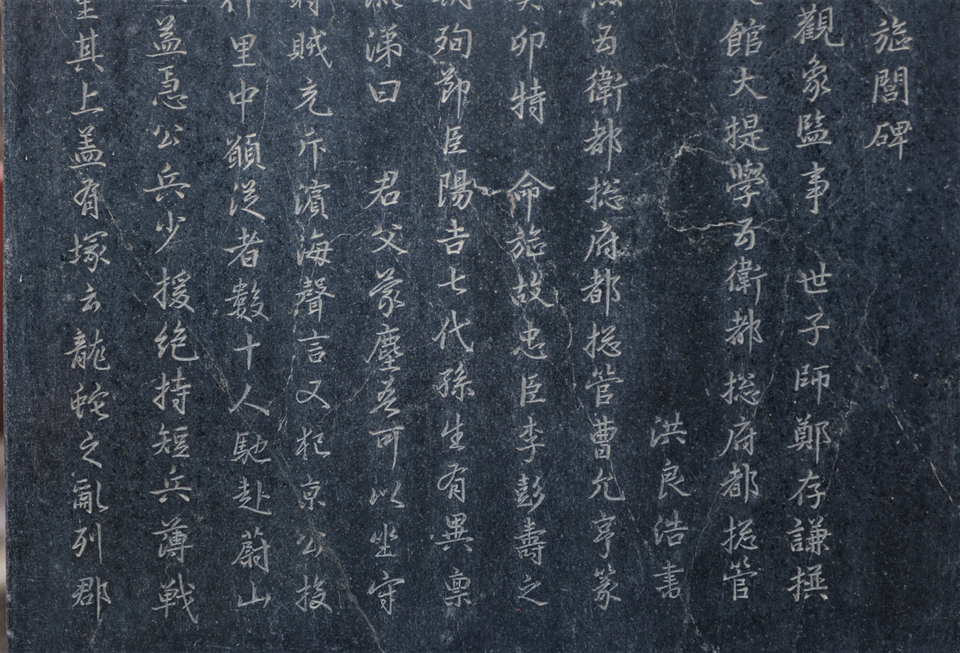 旌閭碑
觀象監事 世子師鄭存謙撰
館大提學五衛都摠府都摠管
洪良浩書
五衛都摠府都摠管曹允亨篆
卯特 命旌故忠臣李彭壽之
殉節臣陽吉七代孫生有異禀
涕曰 君父蒙塵吾可以坐守
賊充斥濱海聲言又犯京公投
里中願從者數十人馳赴蔚山
益急公兵少援絶持短兵薄戰
其上盖有塚云龍蛇之亂列郡